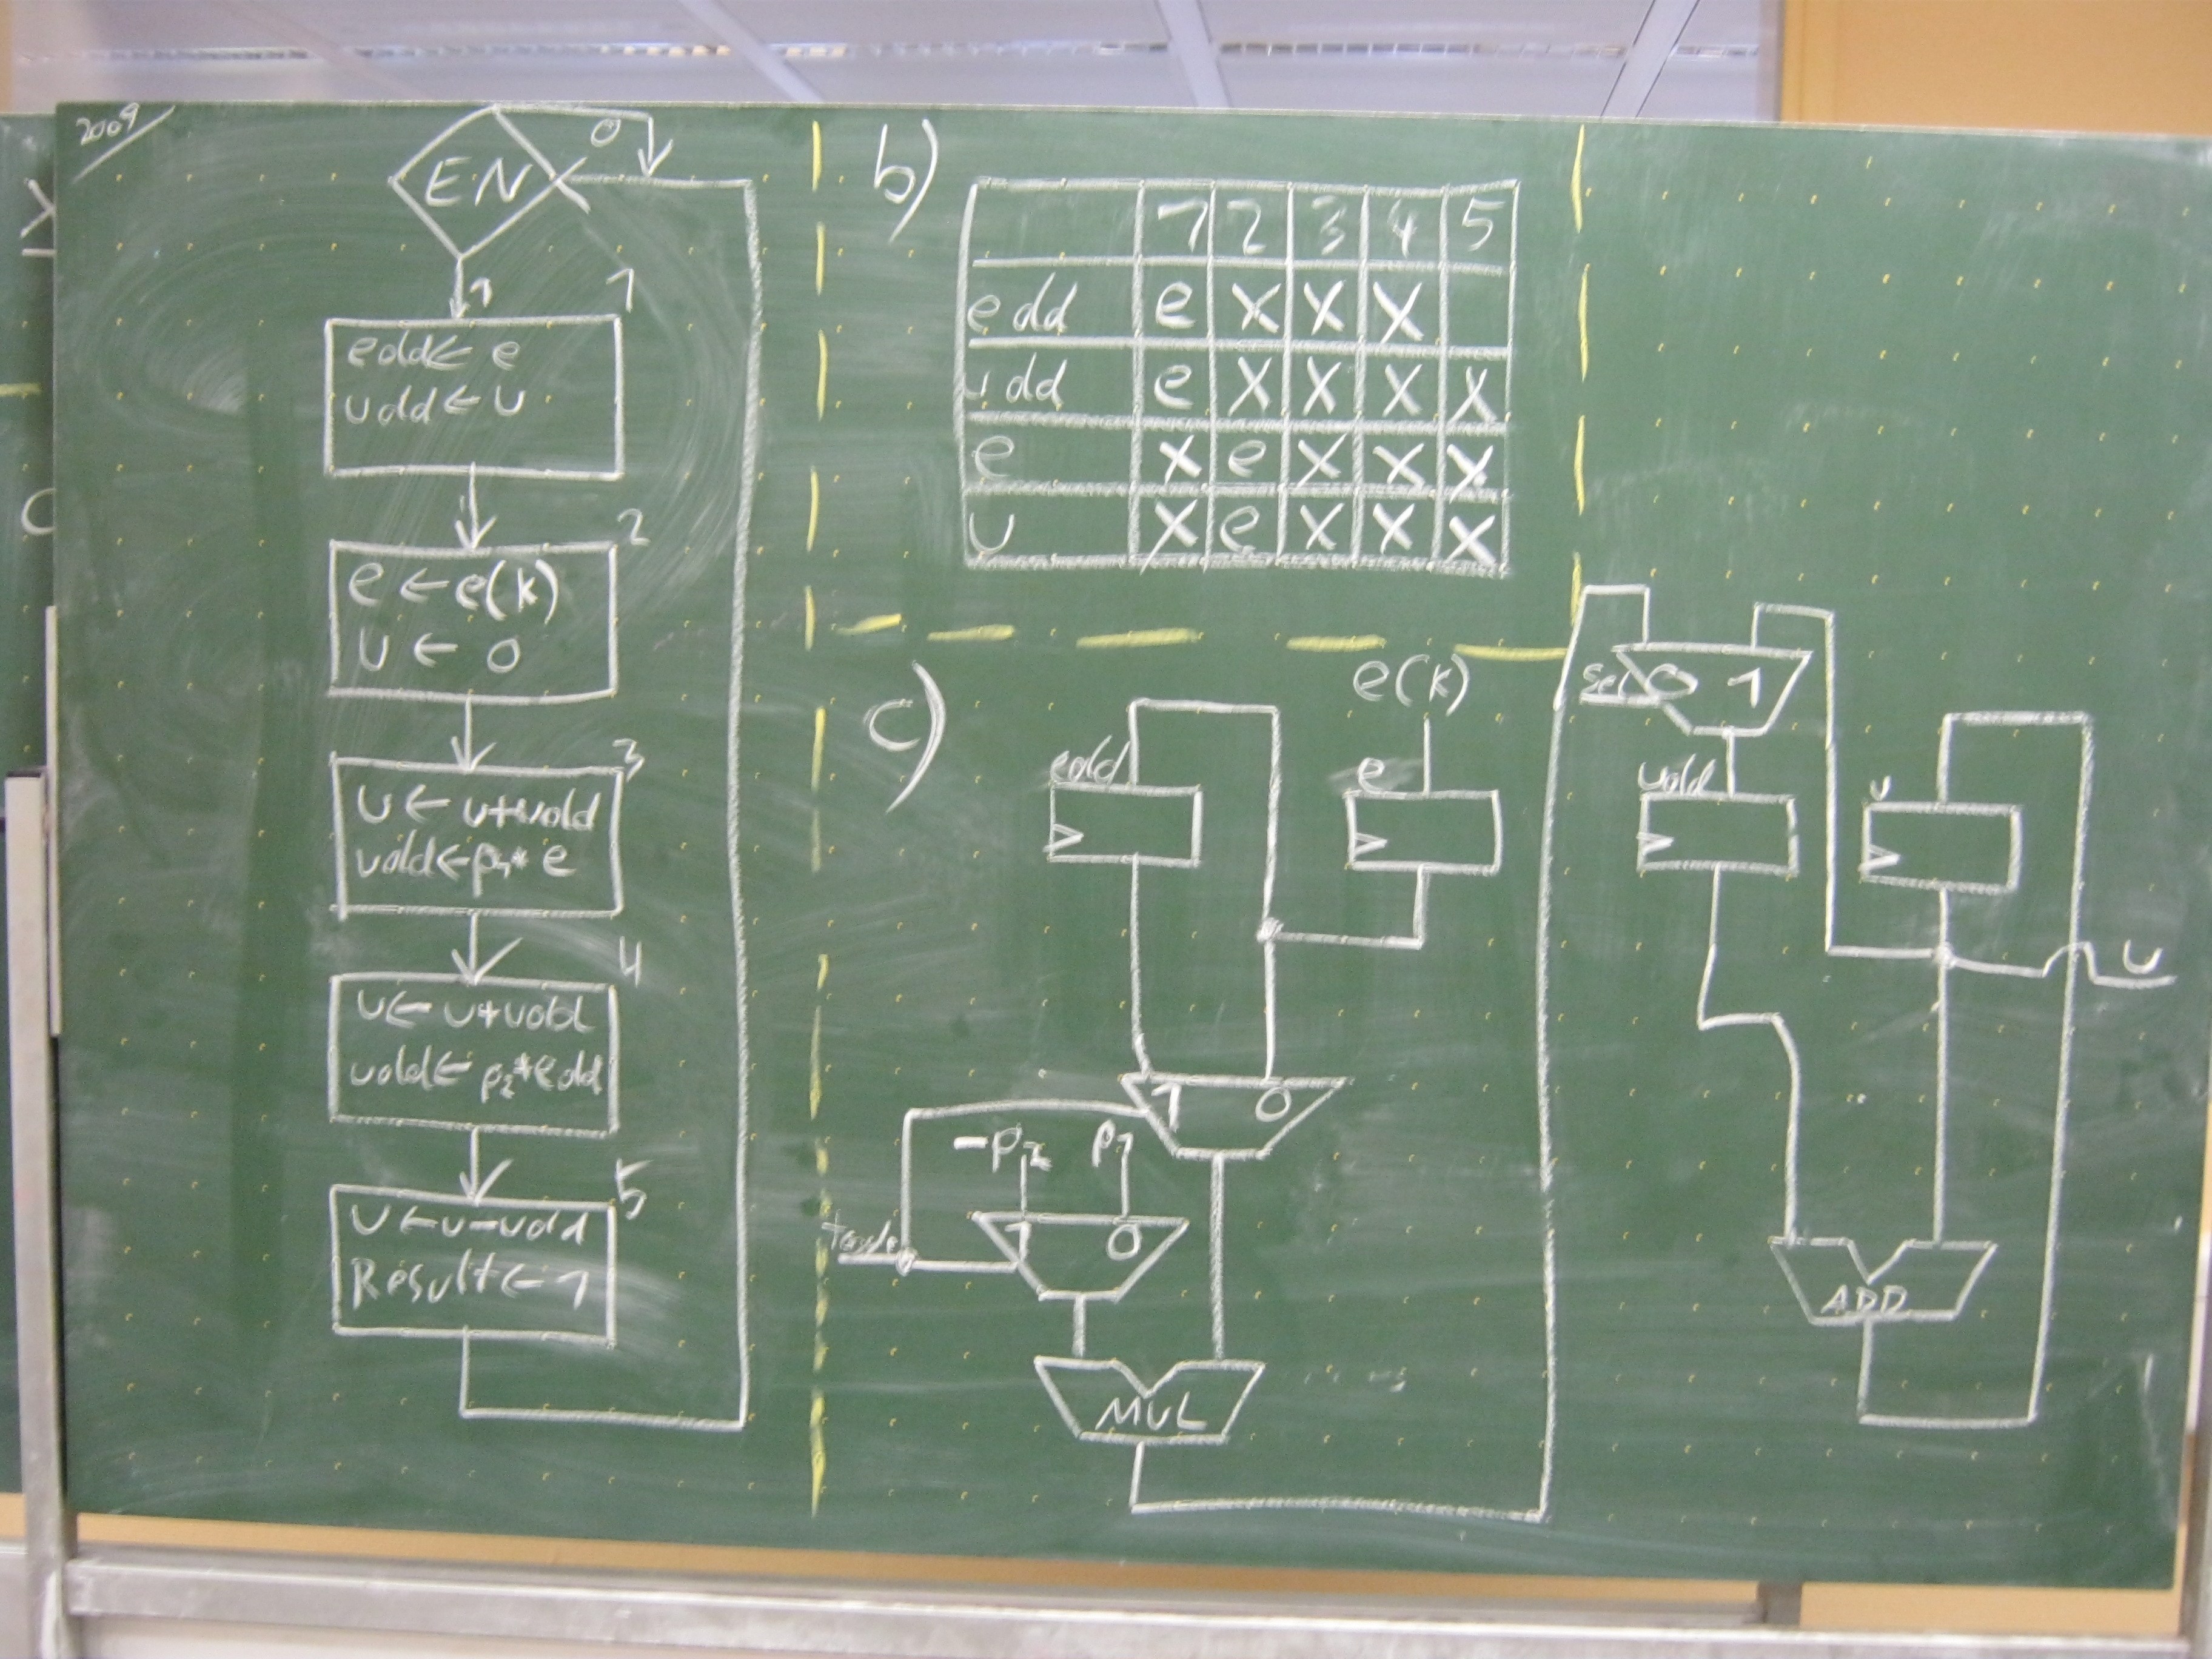 2009
EN
0
1
1
eold ← e
uold ← u
2
e ← e(k)
u ← 0
3
u ← u+uold
uold ← p1* e
4
u ← u+uold
uold ← p2*eold
5
u ← u-uold
Result ← 1
b)
1 2 3 4 5
eold e X X X
uold e X X X X
e X e X X X
u X e X X X
c)
e(k)
eold
e
sel 0 1
uold
u
u
1 0
-p2 p1
1 0
MUL
ADD